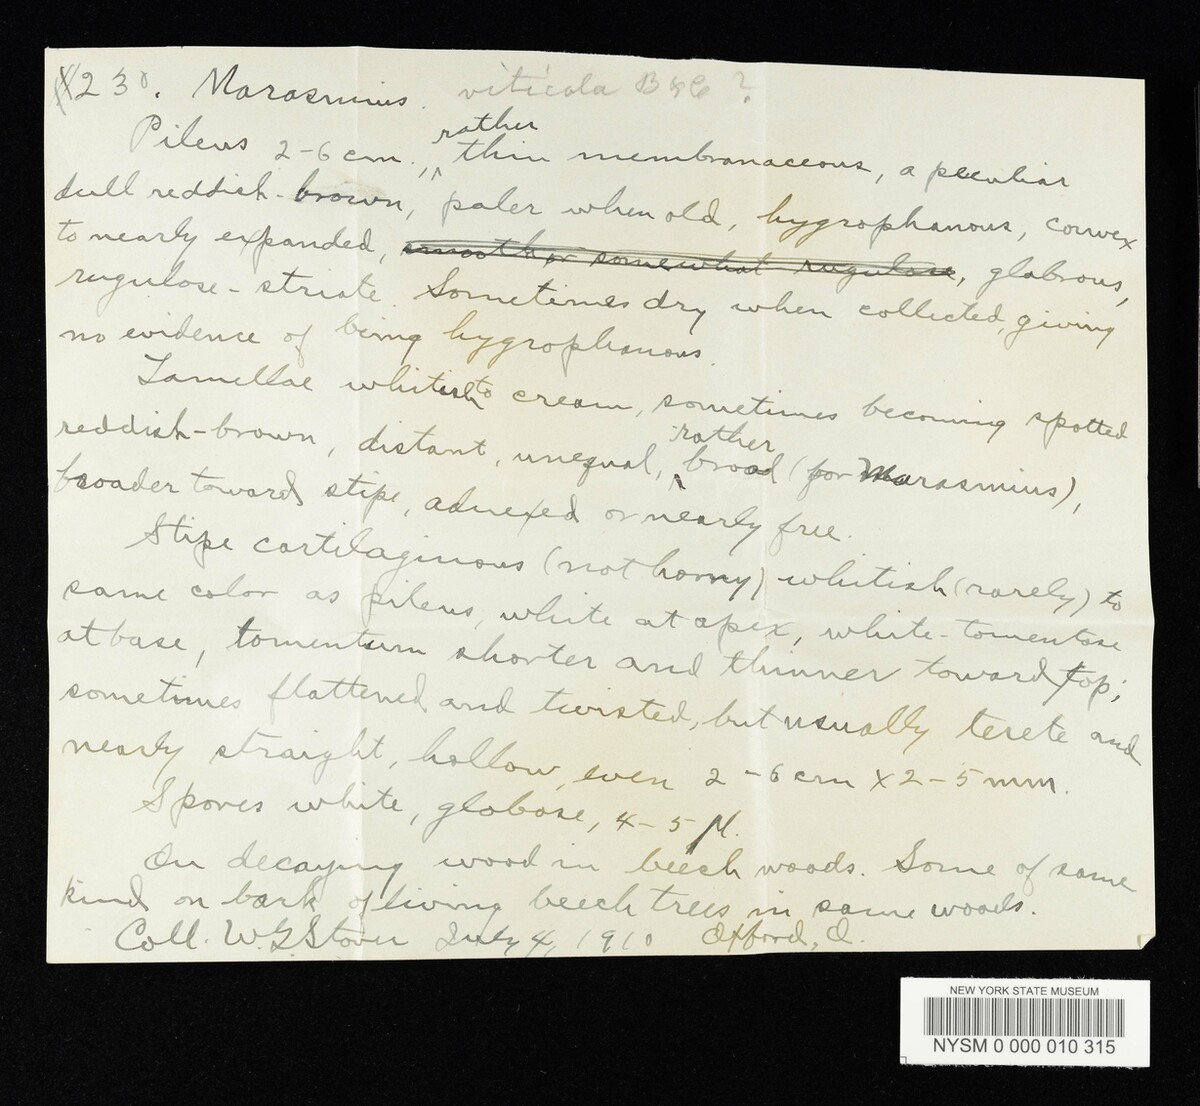 X23°. Marasmius. viticola B & C ?
Pileus 2-6 cm., rather thin membranaceous, a peculiar
dull reddish-brown, paler when old, hygrophanous, convex
to nearly expanded, smooth or somewhat rugulose, glabrous,
rugulose-striate. Sometimes dry when collected, giving
no evidence of being hygrophanous.
Lamellae whitish to cream, sometimes becoming spotted
reddish-brown, distant, unequal, rather broad (for Marasmius),
broader toward stipe, adnexed or nearly free.
Stipe cartilaginous (not horny) whitish (rarely) to
same color as pileus, white at apex, white-tomentose
at base, tomentum shorter and thinner toward top;
sometimes flattened and twisted, but usually terete and
nearly straight, hollow, even 2-6 cm X 2-5 mm.
Spores white, globose, 4-5 µ.
On decaying wood in beech woods. Some of same
kind on bark of living beech trees in same woods.
Coll. W.G. Stover July 4, 1910 Oxford, O.
NEW YORK STATE MUSEUM
NYSM 0 000 010 315